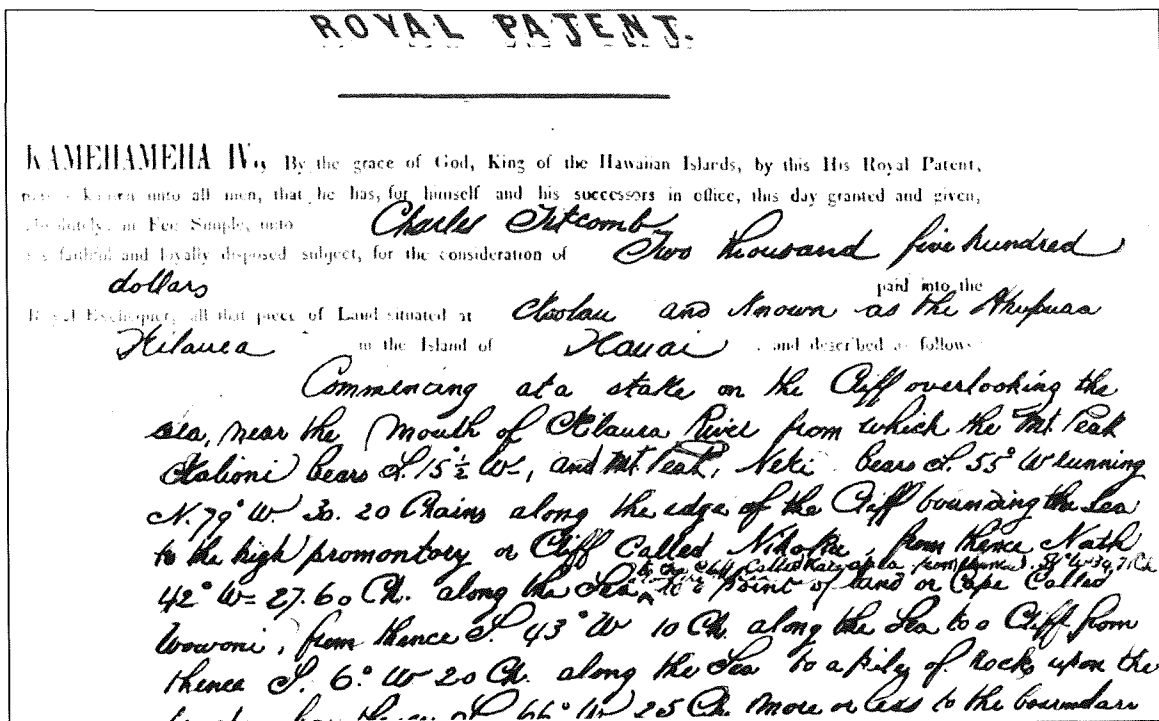 ROYAL PATENT.
KAMEHAMEHA IV., By the grace of God, King of the Hawaiian Islands, by this His Royal Patent,
known unto all men, that he has, for himself and his successors in office, this day granted and given,
absolutely, in Fee Simple, unto Charles Titcomb
his faithful and loyally disposed subject, for the consideration of Two thousand five hundred
dollars paid into the
Royal Exchequer, all that piece of Land situated at Koolau and known as the Ahupuaa
Kilauea in the Island of Kauai and described as follows
Commencing at a stake on the Cliff overlooking the
sea, near the Mouth of Kilauea River from which the Mt. Peak
Kalioni bears S. 15° ½ W-, and Mt. Peak, Neki bears S. 55° W running
N. 79° W 30.20 Chains along the edge of the Cliff bounding the Sea
to the high promontory or Cliff Called from thence North
to the Cliff Called from thence S.
42° W- 27.60 Ch. along the Sea to a point of land or Cape Called
Wowoni, from thence S. 43° W 10 Ch. along the Sea to a Cliff from
thence S. 6° W 20 Ch. along the Sea to a pile of Rocks upon the
thence S. 66° W 25 Ch. more or less to the boundary